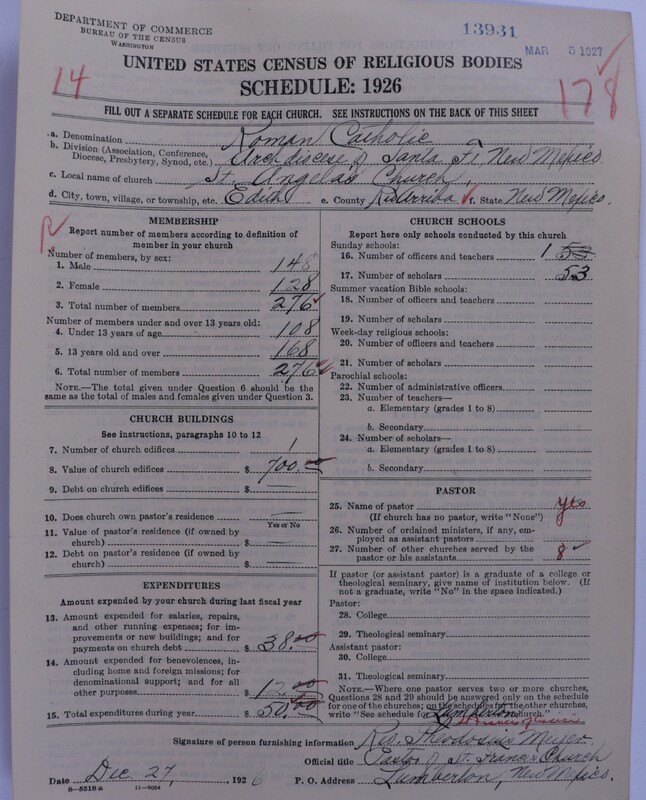 DEPARTMENT OF COMMERCE
BUREAU OF THE CENSUS
WASHINGTON
13931
MAR 5 1927
UNITED STATES CENSUS OF RELIGIOUS BODIES
SCHEDULE: 1926
14
178
FILL OUT A SEPARATE SCHEDULE FOR EACH CHURCH. SEE INSTRUCTIONS ON THE BACK OF THIS SHEET
a. Denomination Roman Catholic
b. Division (Association, Conference, Diocese, Presbytery, Synod, etc.) Archdiocese of Santa Fe New Mexico
c. Local name of church St. Angelas Church,
d. City, town, village, or township, etc. Edith e. County Rio Arriba f. State New Mexico.
MEMBERSHIP
Report number of members according to definition of
member in your church
Number of members, by sex:
1. Male 148
2. Female 128
3. Total number of members 276
Number of members under and over 13 years old:
4. Under 13 years of age 108
5. 13 years old and over 168
6. Total number of members 276
NOTE.—The total given under Question 6 should be
same as the total of males and females given under Question 3.
CHURCH BUILDINGS
See instructions, paragraphs 10 to 12
7. Number of church edifices 1
8. Value of church edifices $ 700.00
9. Debt on church edifices $
10. Does church own pastor's residence
Yes or No
11. Value of pastor's residence (if owned by
church) $
12. Debt on pastor's residence (if owned by
church) $
EXPENDITURES
Amount expended by your church during last fiscal year
13. Amount expended for salaries, repairs,
and other running expenses; for im-
provements or new buildings; and for
payments on church debt $ 38.00
14. Amount expended for benevolences,
including home and foreign missions; for
denominational support; and for all
other purposes $ 12.00
15. Total expenditures during year $ 50.00
CHURCH SCHOOLS
Report here only schools conducted by this church
Sunday schools:
16. Number of officers and teachers 1 53
17. Number of scholars 53
Summer vacation Bible schools:
18. Number of officers and teachers
19. Number of scholars
Week-day religious schools:
20. Number of officers and teachers
21. Number of scholars
Parochial schools:
22. Number of administrative officers
23. Number of teachers—
a. Elementary (grades 1 to 8)
b. Secondary
24. Number of scholars—
a. Elementary (grades 1 to 8)
b. Secondary
PASTOR
25. Name of pastor yes
(If church has no pastor, write "None")
26. Number of ordained ministers, if any, em-
ployed as assistant pastors
27. Number of other churches served by the
pastor or his assistants 8
If pastor (or assistant pastor) is a graduate of a college or
theological seminary, give name of institution below. (If
not a graduate, write "No" in the space indicated.)
Pastor:
28. College
29. Theological seminary
Assistant pastor:
30. College
31. Theological seminary
NOTE.—Where one pastor serves two or more churches,
Questions 28 and 29 should be answered only on the schedule
for one of the churches; on the schedules for the other churches,
write "See schedule for Lumberton church."
St Francis
Signature of person furnishing information Rev. Theodosius Meyer
Official title Pastor of St. Francis Church
Date Dec. 27, 1926 P. O. Address Lumberton, New Mexico.
8—5518 a 11—9054